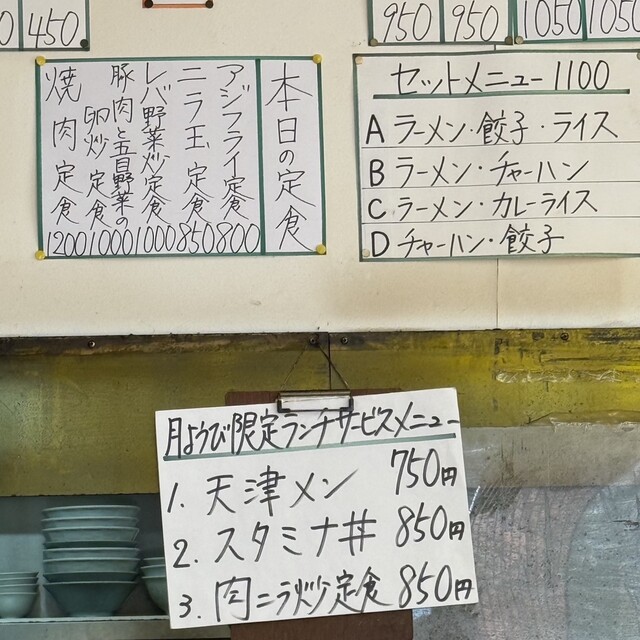 450
950
950
1050
1050
本日の定食
アジフライ定食 800
ニラ玉定食 850
レバ野菜炒定食 1000
豚肉と五目野菜の
卵炒定食 1000
焼肉定食 1200
セットメニュー 1100
A ラーメン・餃子・ライス
B ラーメン・チャーハン
C ラーメン・カレーライス
D チャーハン・餃子
月ようび限定ランチサービスメニュー
1. 天津メン 750円
2. スタミナ丼 850円
3. 肉ニラ炒定食 850円